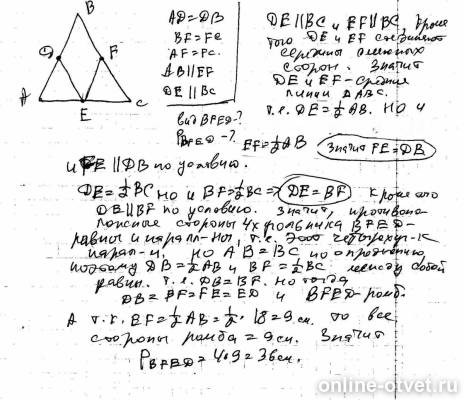 B
D
F
A
E
C
AD=DB
BF=FC
AF=FC.
AB||EF
DE||BC
вид BFED-?
P BFED-?
DE||BC и EF||BC, кроме
того DE и EF соединяют
середины смежных
сторон. Значит
DE и EF-средние
линии ΔABC.
т.е. DE=½AB. но и
EF=½AB
Значит FE=DB
и FE||DB по условию.
DE=½BC но и BF=½BC=> DE=BF кроме того
DE||BF по условию. Значит, противопо
ложные стороны 4х угольника BFED-
равны и паралл-ны, т.е. этот четырехуг-к
парал-м. но AB=BC по определению
поэтому DB=½AB и BF=½BC между собой
равны. т.е. DB=BF. но тогда
DB=BF=FE=ED и BFED-ромб.
А т.к. EF=½AB=½·18=9см. то все
стороны ромба=9см. Значит
P BFED=4·9=36см.
online-otvet.ru